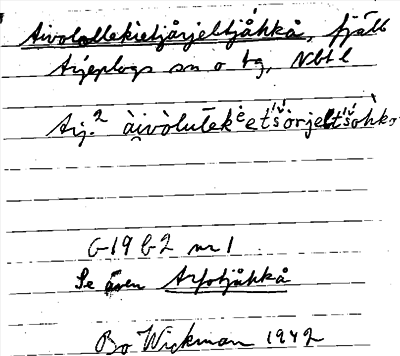 Aivolollekietjårjeltjåhkå, fjäll
Arjeplogs sn o tg, Nbtl
Arj.²
G 19 b 2 nr 1
Se även Arfotjåhkå
Bo Wickman 1942